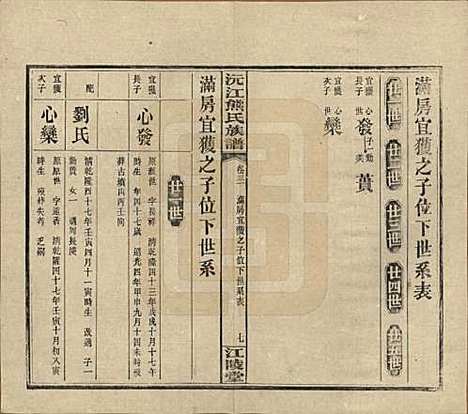 滿房宜獲之子位下世系表
廿一世
廿二世
廿三世
廿四世
廿五世
宜獲
長子
發
子一勳
美
賁
宜獲
次子
欒
沅江熊氏族譜
卷三 滿房宜獲之子位下世系表
七
江陵堂
滿房宜獲之子位下世系
廿一世
宜獲
長子
心發
原原世 字長祥 清乾隆四十三年戊戌十月十七年
時生 年四十七歲 道光四年甲申九月十四未時
葬古墳四丙壬向
配
劉氏
清乾隆四十七年壬寅四月十一寅時生 改適 子一
勳賁 女一
宜獲
次子
心欒
原原世 字道 清乾隆四十七年壬寅十月初八寅
時生 殁葬失考 乏嗣